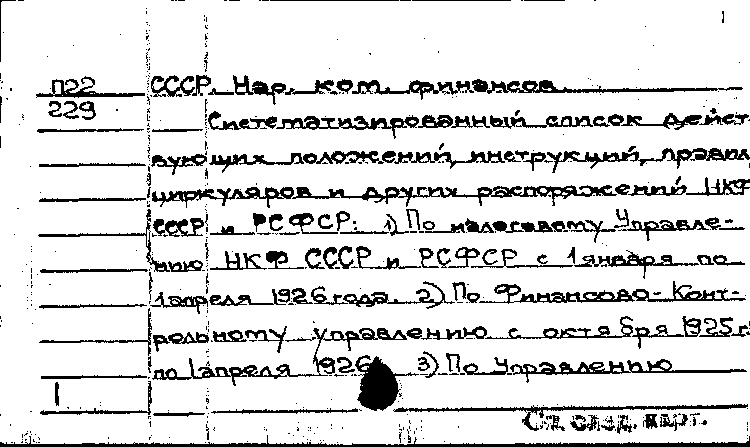 1
П22 СССР. Нар. ком. финансов.
229 Систематизированный список дейст-
вующих положений, инструкций, правил,
циркуляров и других распоряжений НКФ
СССР и РСФСР: 1) По налоговому Управле-
нию НКФ СССР и РСФСР с 1 января по
1 апреля 1926 года. 2) По Финансово-Конт-
рольному управлению с октября 1925 г.
по 1 апреля 1926 3) По Управлению
1
См. след. карт.